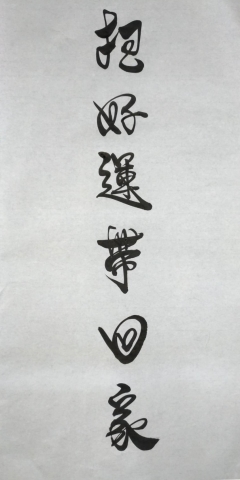 把好運帶回家